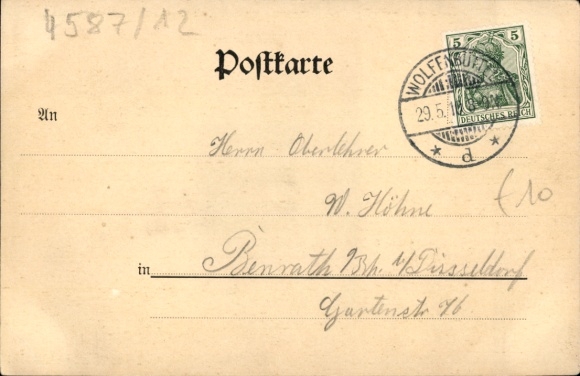 4587/12
Postkarte
5 5
DEUTSCHES REICH
WOLFENBÜTTEL
29.5.
d
An
Herrn Oberlehrer
W. Höhne
£10
in Benrath b/Rh. b/Düsseldorf
Gartenstr